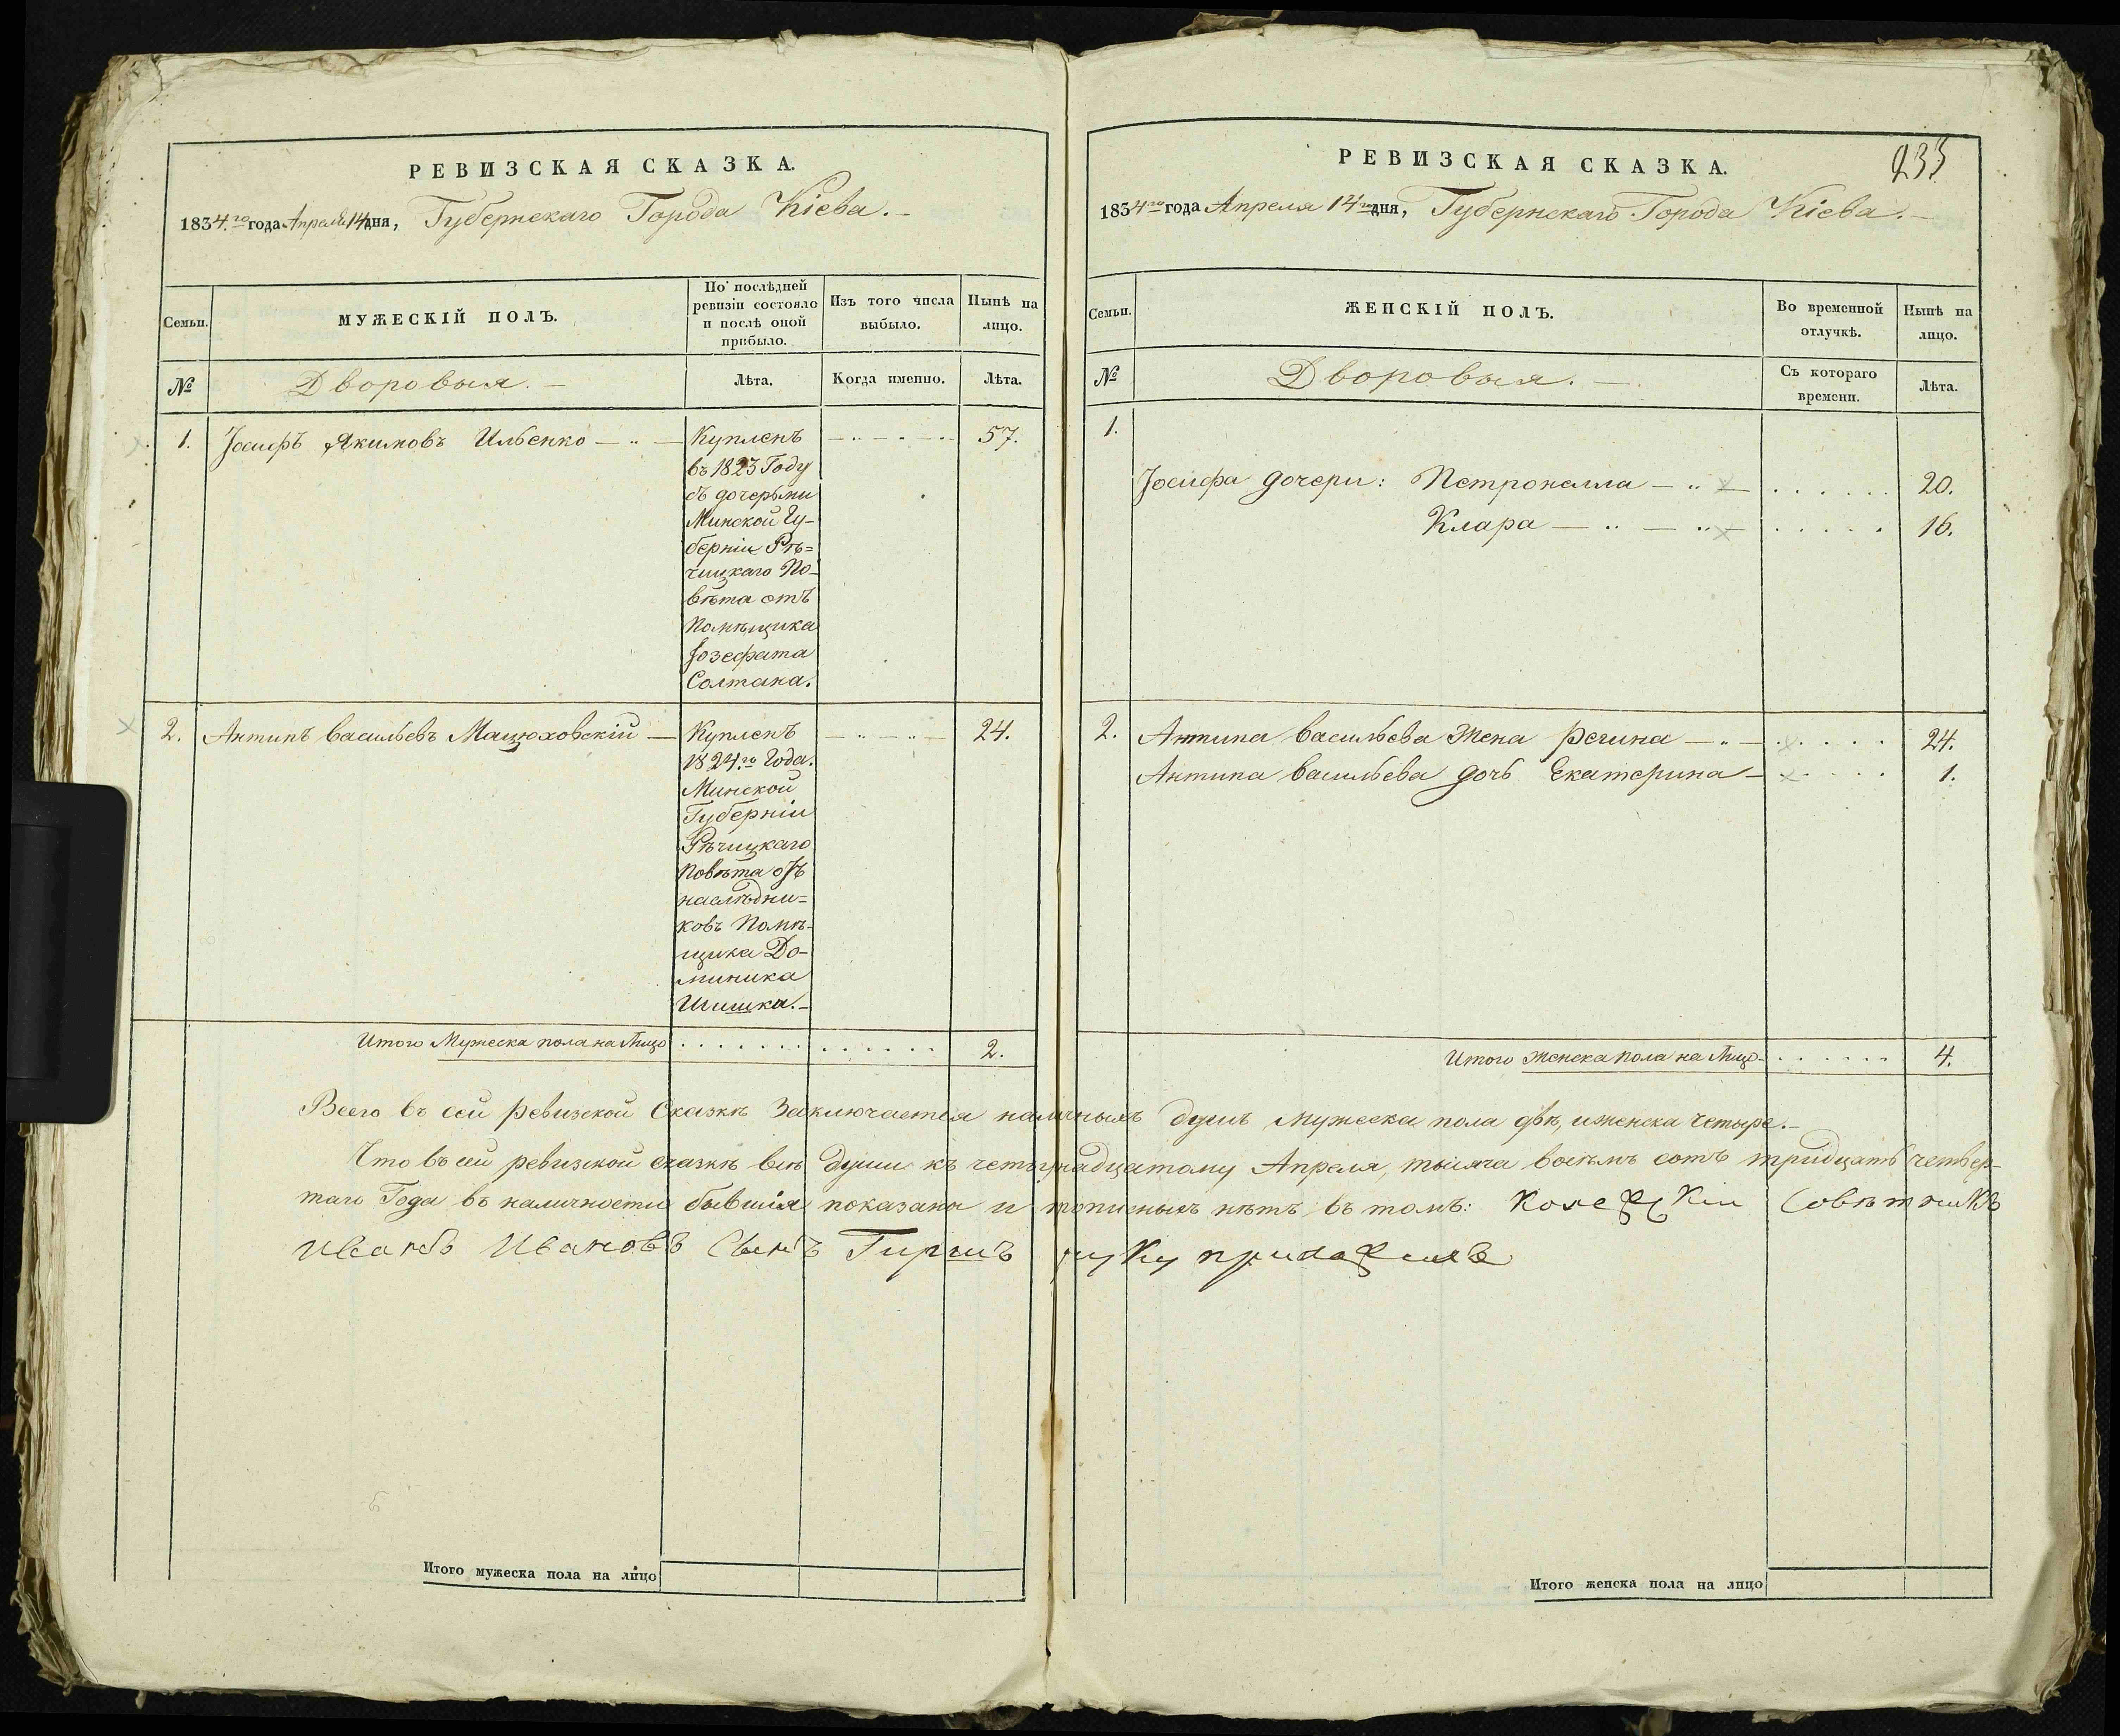 РЕВИЗСКАЯ СКАЗКА.
1834.го года Апреля 14 дня, Губернскаго Города Кіева.
Семьи.
МУЖЕСКІЙ ПОЛЪ.
По послѣдней ревизіи состояло и послѣ оной прибыло.
Изъ того числа выбыло.
Нынѣ на лицо.
№
Дворовыя.
Лѣта.
Когда именно.
Лѣта.
1. Іосифъ Якимовъ Ильенко
Купленъ
57.
въ 1823 Году
съ дочерьми
Минской Гу-
берніи Рѣ=
чицкаго По-
вѣта отъ
Помѣщика
Іозефата
Солтана.
2. Антипъ Васильевъ Мацюховскій
Купленъ
24.
1824.го Года.
Минской
Губерніи
Рѣчицкаго
Повѣта отъ
наслѣдни=
ковъ Помѣ-
щика До-
миника
Шишка.
Итого Мужеска пола на Лицо
2.
РЕВИЗСКАЯ СКАЗКА.
235
1834го года Апреля 14го дня, Губернскаго Города Кіева.
Семьи.
ЖЕНСКІЙ ПОЛЪ.
Во временной отлучкѣ.
Нынѣ на лицо.
№
Дворовыя.
Съ котораго времени.
Лѣта.
1.
Іосифа дочери: Петронелла 20.
Клара 16.
2. Антипа Васильева Жена Регина 24.
Антипа Васильева дочь Екатерина 1.
Итого Женска пола на Лицо 4.
Всего въ сей ревизской Сказкѣ Заключается наличныхъ душъ мужеска пола двѣ, и женска четыре.
Что въ сей ревизской сказкѣ всѣ души къ четырнадцатому Апреля, тысяча восѣмъ сотъ тридцать четвер-
таго Года въ наличности бывшія показаны и прописныхъ нѣтъ, въ томъ: Колежскіи Совѣтникъ
Иванъ Ивановъ Сынъ Гиршъ руку приложилъ
Итого мужеска пола на лицо
Итого женска пола на лицо